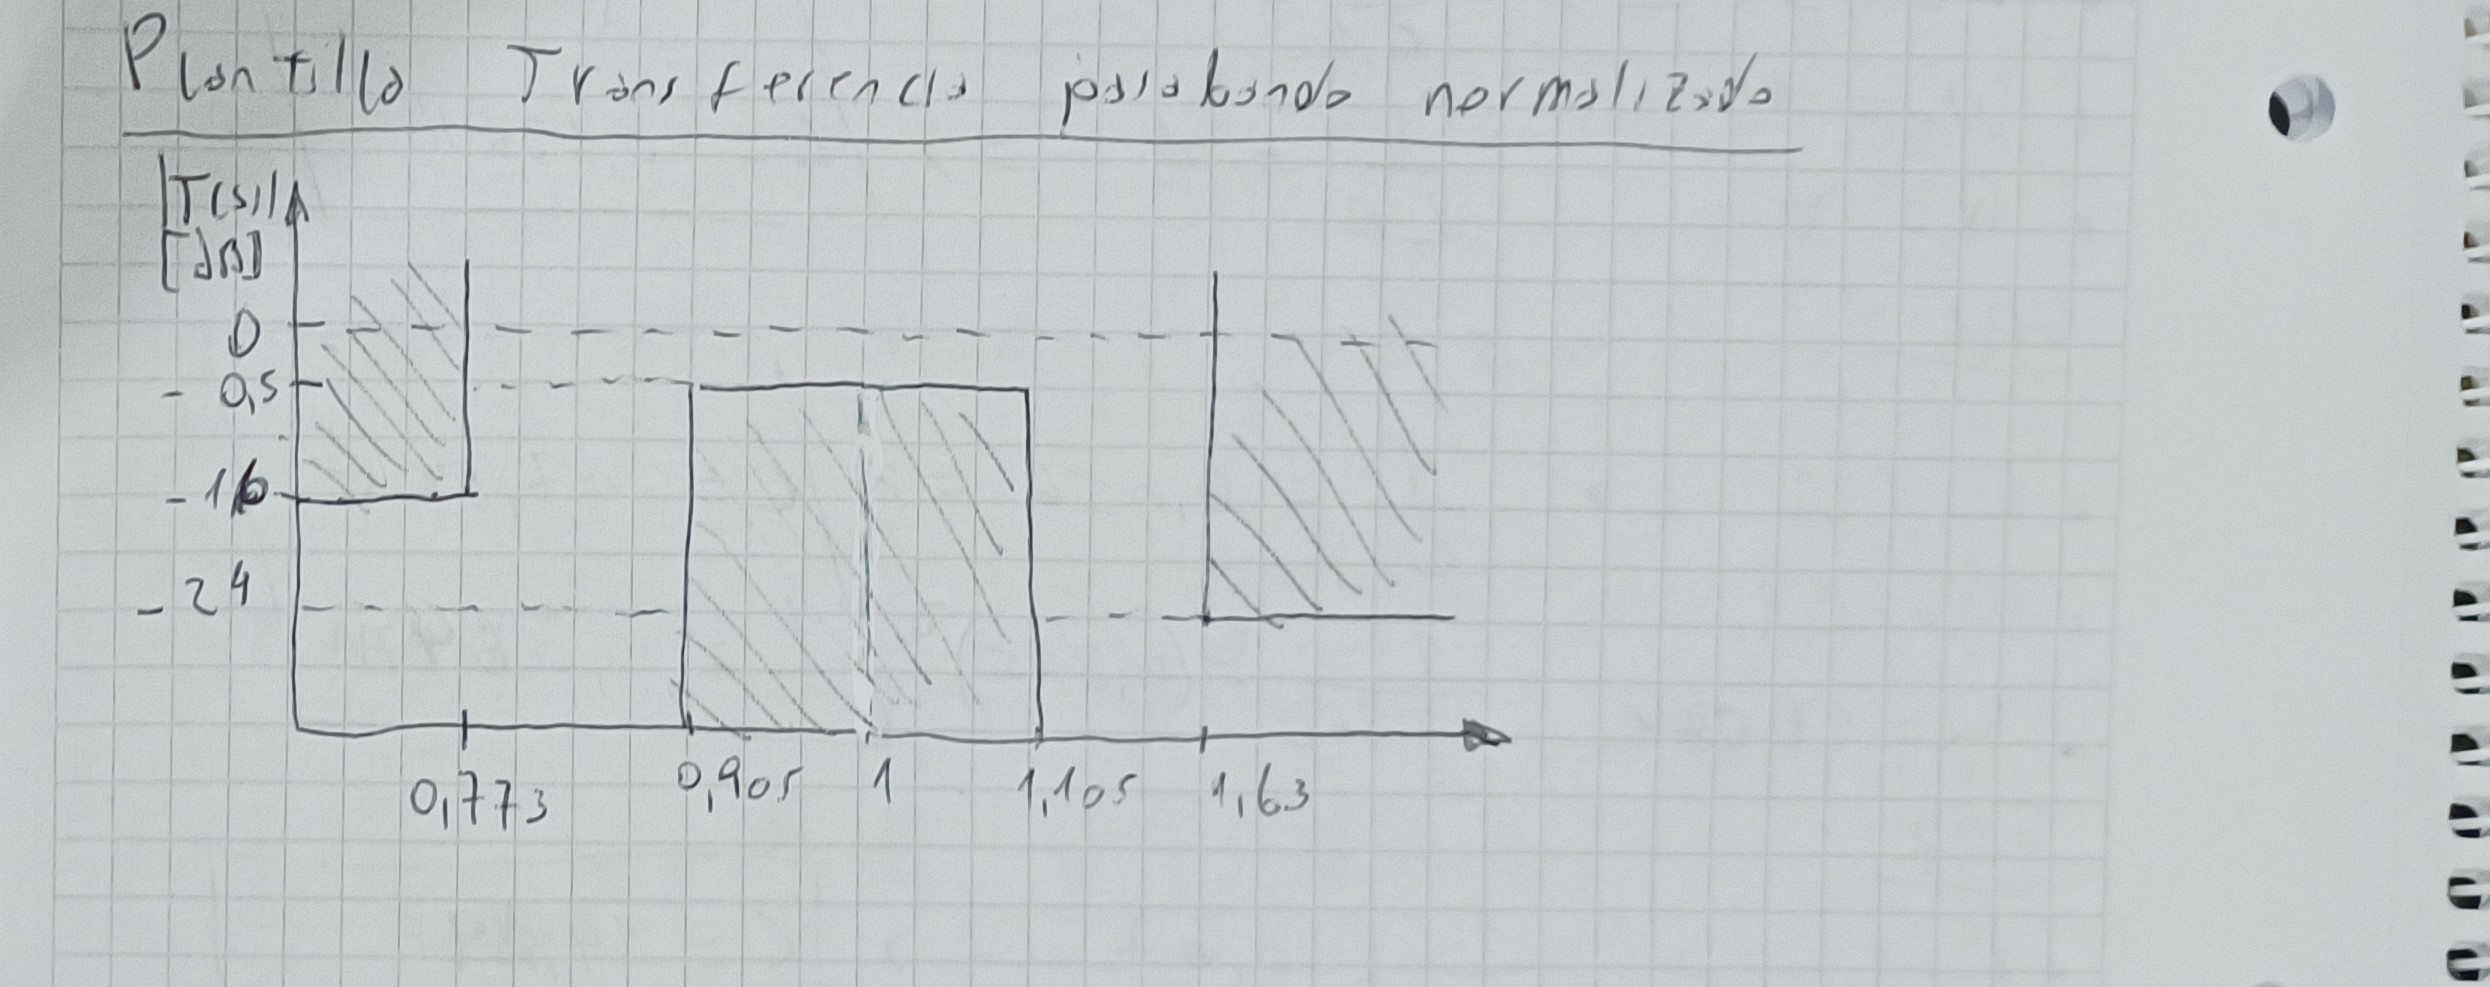 Plantilla Transferencia pasabanda normalizada
|T(s)|
[dB]
0
- 0,5
- 16
- 24
0,773 0,905 1 1,105 1,63